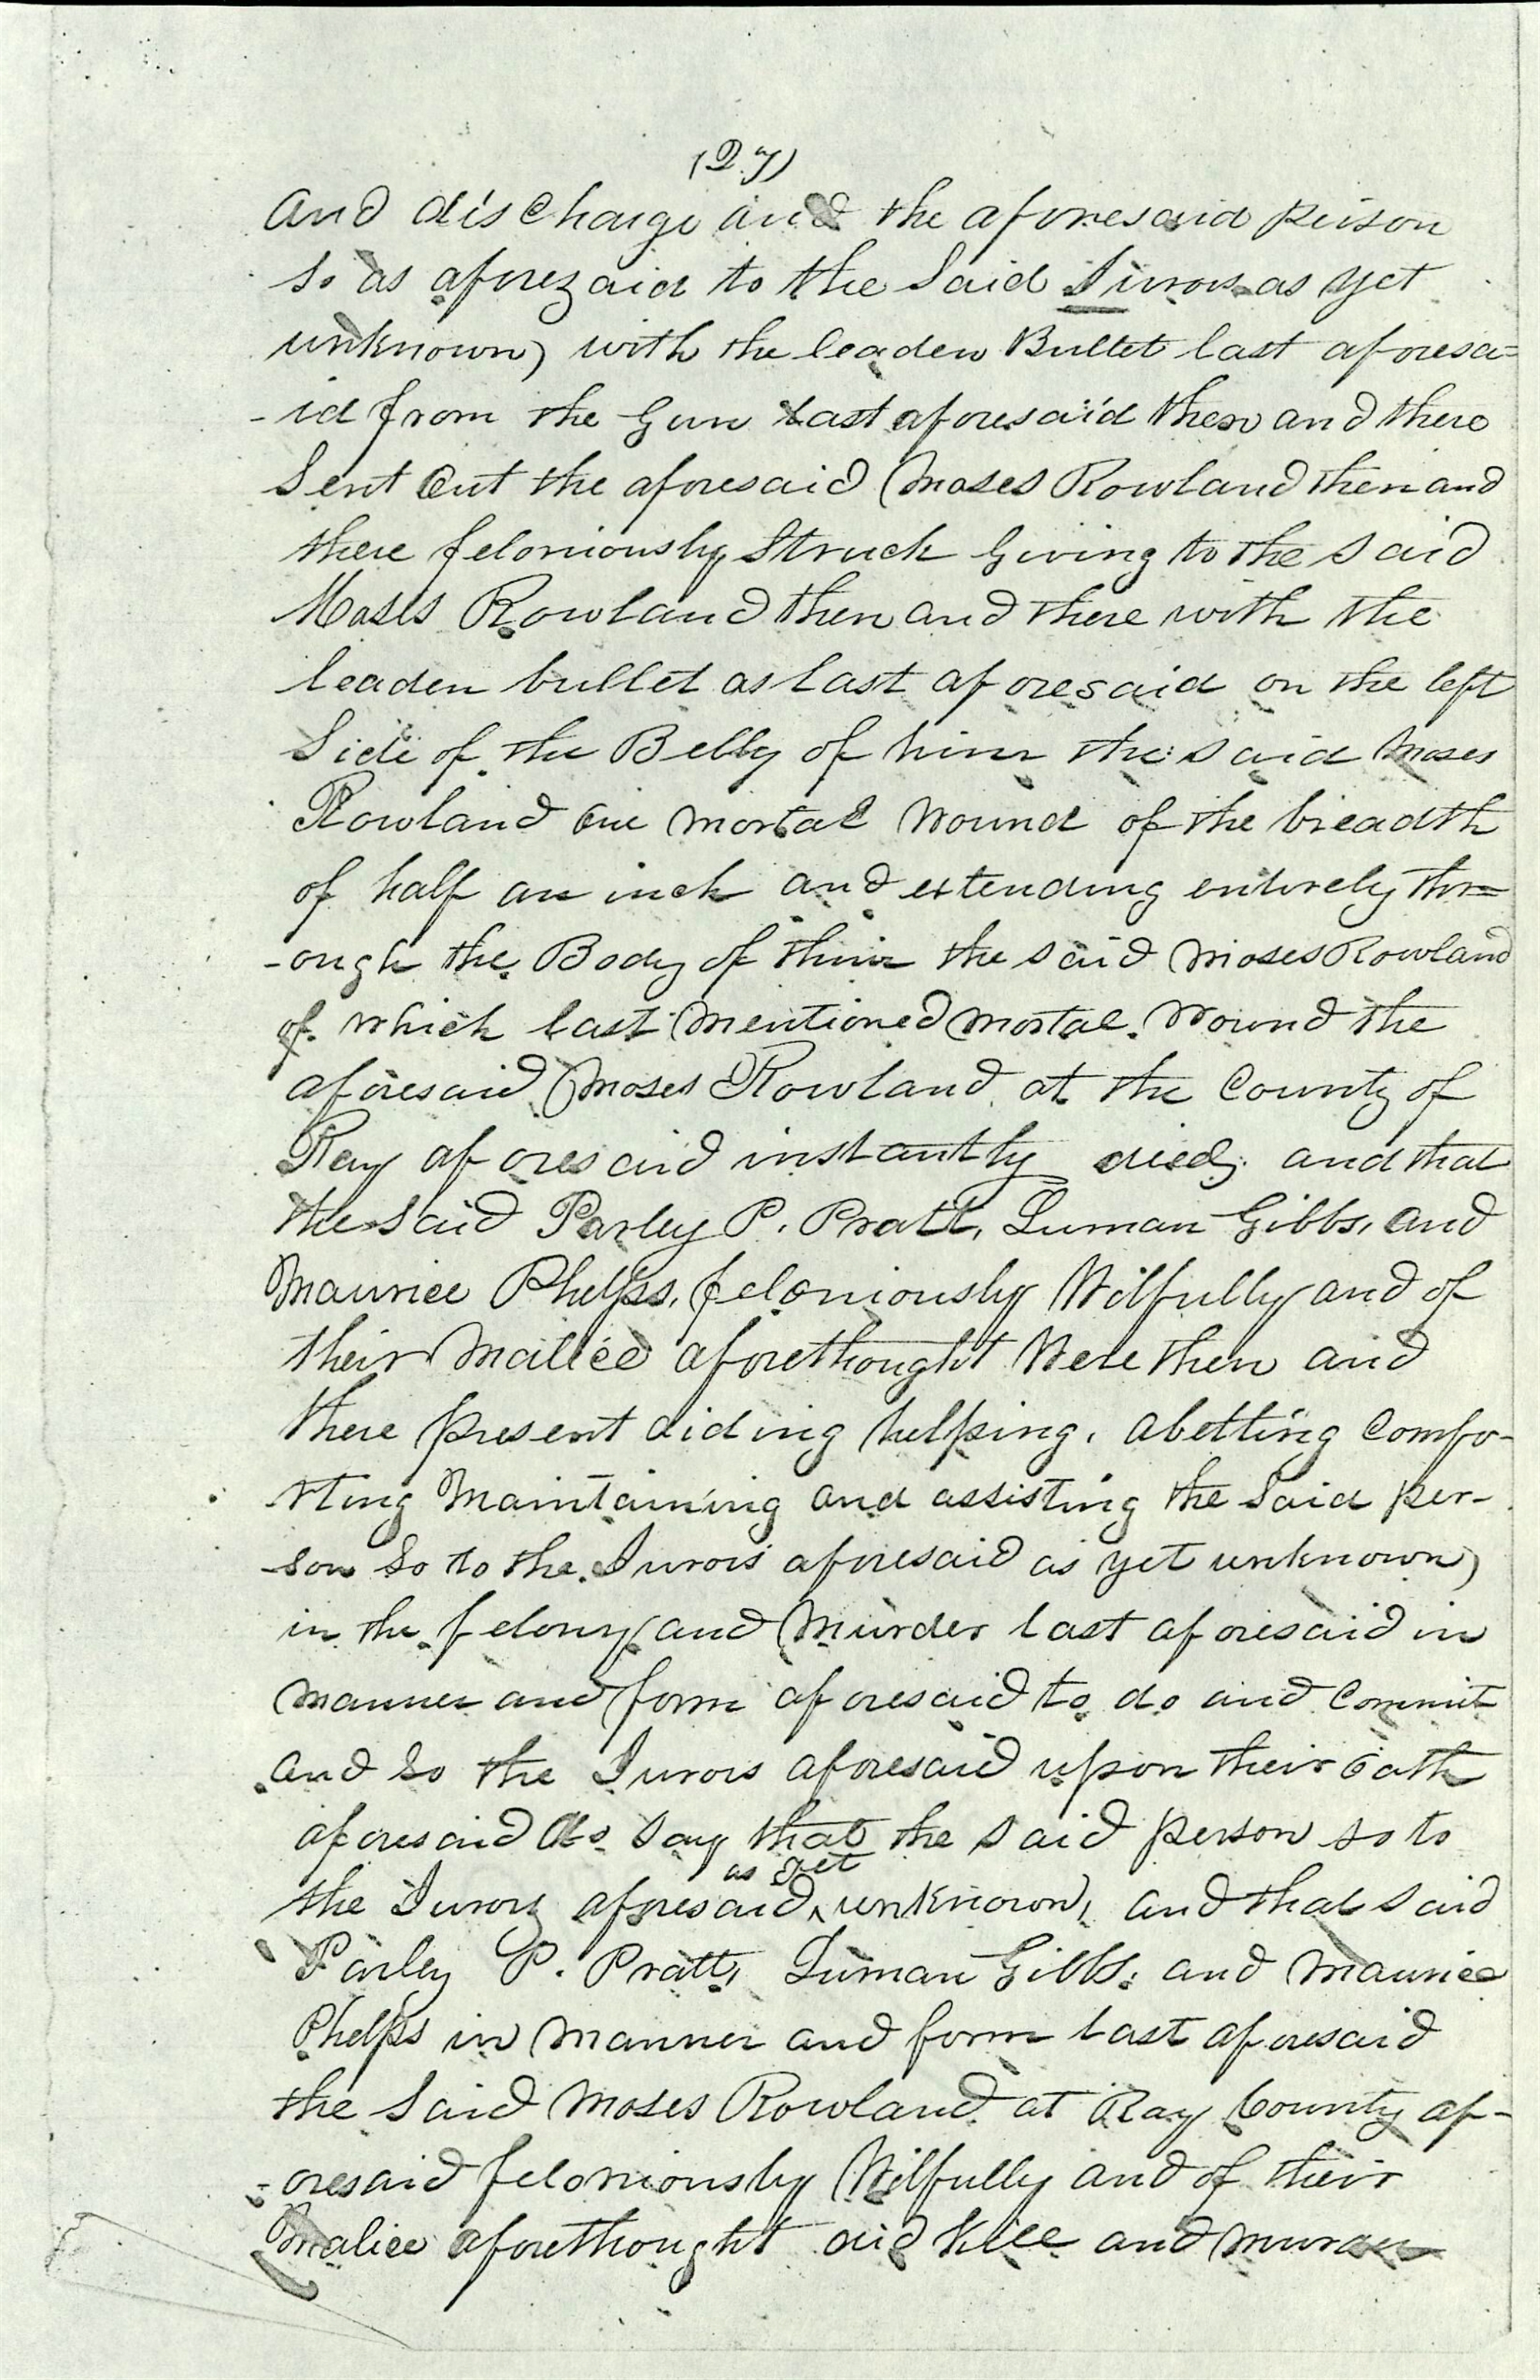 (27)
and discharge and the aforesaid person
so as aforezaid to the said Jurors as yet
unknown) with the leaden Bullet last aforesa=
-id from the Gun last aforesaid then and there
Sent Out the aforesaid Moses Rowland then and
there feloniously Struck Giving to the said
Moses Rowland then and there with the
leaden bullet as last aforesaid on the left
Side of the Belly of him the said Moses
Rowland one mortal Wound of the breadth
of half an inch and extending entirely thr=
-ough the Body of him the said Moses Rowland
of which last Mentioned Mortal Wound the
aforesaid Moses Rowland at the County of
Ray aforesaid instantly died; and that
the said Parley P. Pratt, Luman Gibbs, and
Maurice Phelps, feloniously Wilfully and of
their Malice aforethought Were then and
there present aiding helping, abetting Comfo-
-rting Maintaining and assisting the said per-
-son so to the Jurors aforesaid as yet unknown)
in the felony and Murder last aforesaid in
Manner and form aforesaid to do and Commit
and so the Jurors aforesaid upon their oath
aforesaid do say that the said person so to
the Jurors aforesaid ^as yet unknown, and that said
Parley P. Pratt, Luman Gibbs, and Maurice
Phelps in Manner and form last aforesaid
the said Moses Rowland at Ray County af-
-oresaid feloniously Wilfully and of their
Malice aforethought did Kill and Murder